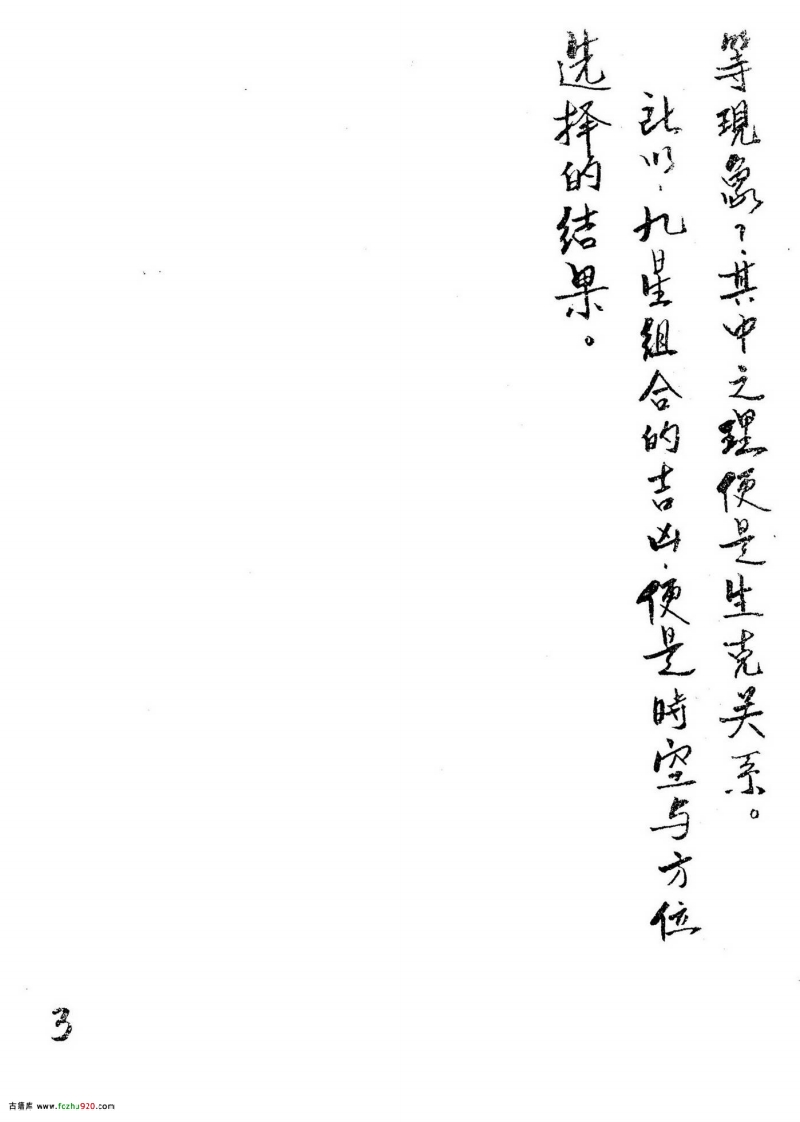 等現象？其中之理便是生克关系。
所以，九星組合的吉凶，便是時空与方位
选择的结果。
3
古籍库 www.fczhu920.com